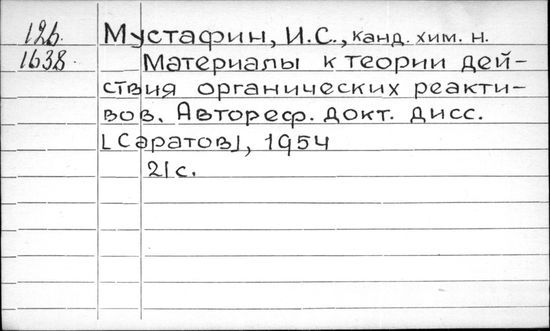 126. Мустафин, И.С., канд. хим. н.
1638. Материалы к теории дей-
ствия органических реакти-
вов. Автореф. докт. дисс.
[Саратов], 1954
21 с.